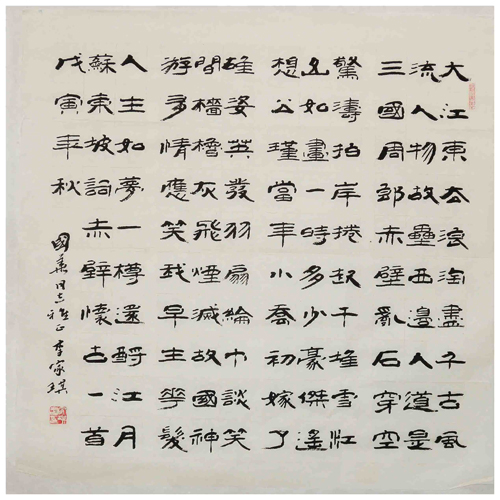 大江東去浪淘盡千古風
流人物故壘西邊人道是
三國周郎赤壁亂石穿空
驚濤拍岸捲起千堆雪江
山如畫一時多少豪傑遙
想公瑾當年小喬初嫁了
雄姿英發羽扇綸巾談笑
間檣櫓灰飛煙滅故國神
游多情應笑我早生華髮
人生如夢一樽還酹江月
蘇東坡詞赤壁懷古一首
戊寅年秋
國華同志雅正 李家琪